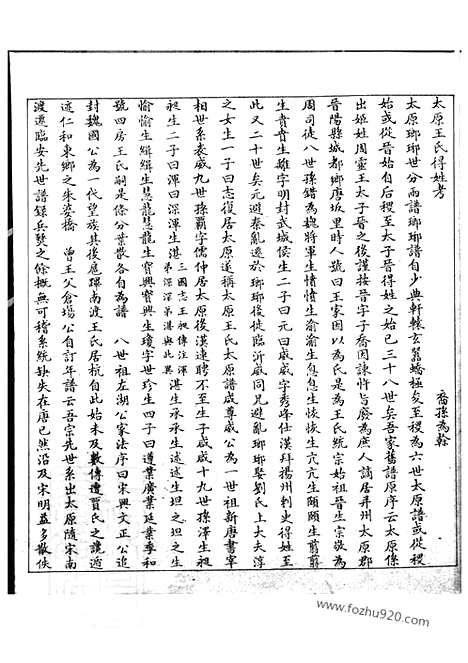 太原王氏得姓考
裔孫為幹
太原瑯琊世分兩譜瑯琊譜自少典軒轅玄囂蟜極爰至稷為六世太原譜或從稷
始或從晉始自后稷至太子晉得姓之始已三十八世矣吾家舊譜原序云太原係
出姬姓周靈王太子晉之後謹按晉字子喬因諫忤旨廢為庶人謫居并州太原郡
晉陽縣城都鄉唐坂里時人號曰王家因以為氏是為王氏統宗始祖晉生宗敬為
周司徒八世孫錯為魏將軍生憤憤生渝渝生息息生恢恢生亢亢生頤頤生翦翦
生賁賁生離字明封武城侯生二子曰元曰威威字秀峰仕漢拜揚州刺史得姓至
此又二十世矣元避秦亂遷於瑯琊後徙臨沂威同兄避亂瑯琊娶劉氏上大夫淳
之女生一子曰志復居太原遂稱太原王氏太原譜咸尊威公為一世祖新唐書宰
相世系表威九世孫霸字儒仲居太原後漢連聘不至生子咸咸十九世孫澤生昶
昶生二子曰渾曰深渾生湛三國志王昶傳注渾弟深深弟湛與此異湛生承承生述述生坦之坦之生
愉愉生緝緝生慧龍慧龍生寶興寶興生瓊字世珍生四子曰遵業廣業延業季和
號四房王氏嗣是條分葉散各自為譜 八世祖左湖公家法序曰宋興文正公追
封魏國公為一代望族其後扈蹕南渡王氏居杭自此始未及數傳遭賈氏之讒遁
迹仁和東鄉之朱婆橋 曾王父倉場公自訂年譜云吾宗先世系出太原隨宋南
渡遷臨安先世譜錄兵燹之餘概無可稽系統缺失在唐已然沿及宋明益多散佚
www.fozhu920.com